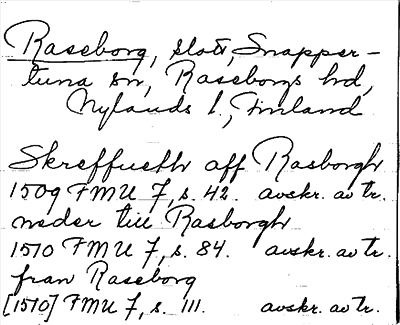 Raseborg, slott, Snapper-
tuna sn, Raseborgs hd,
Nylands l., Finland
Skreffueth aff Rasborgh
1509 FMU 7, s. 42. avskr. av tr.
neder till Rasborgh
1510 FMU 7, s. 84. avskr. av tr.
från Raseborg
[1510] FMU 7, s. 111. avskr. av tr.